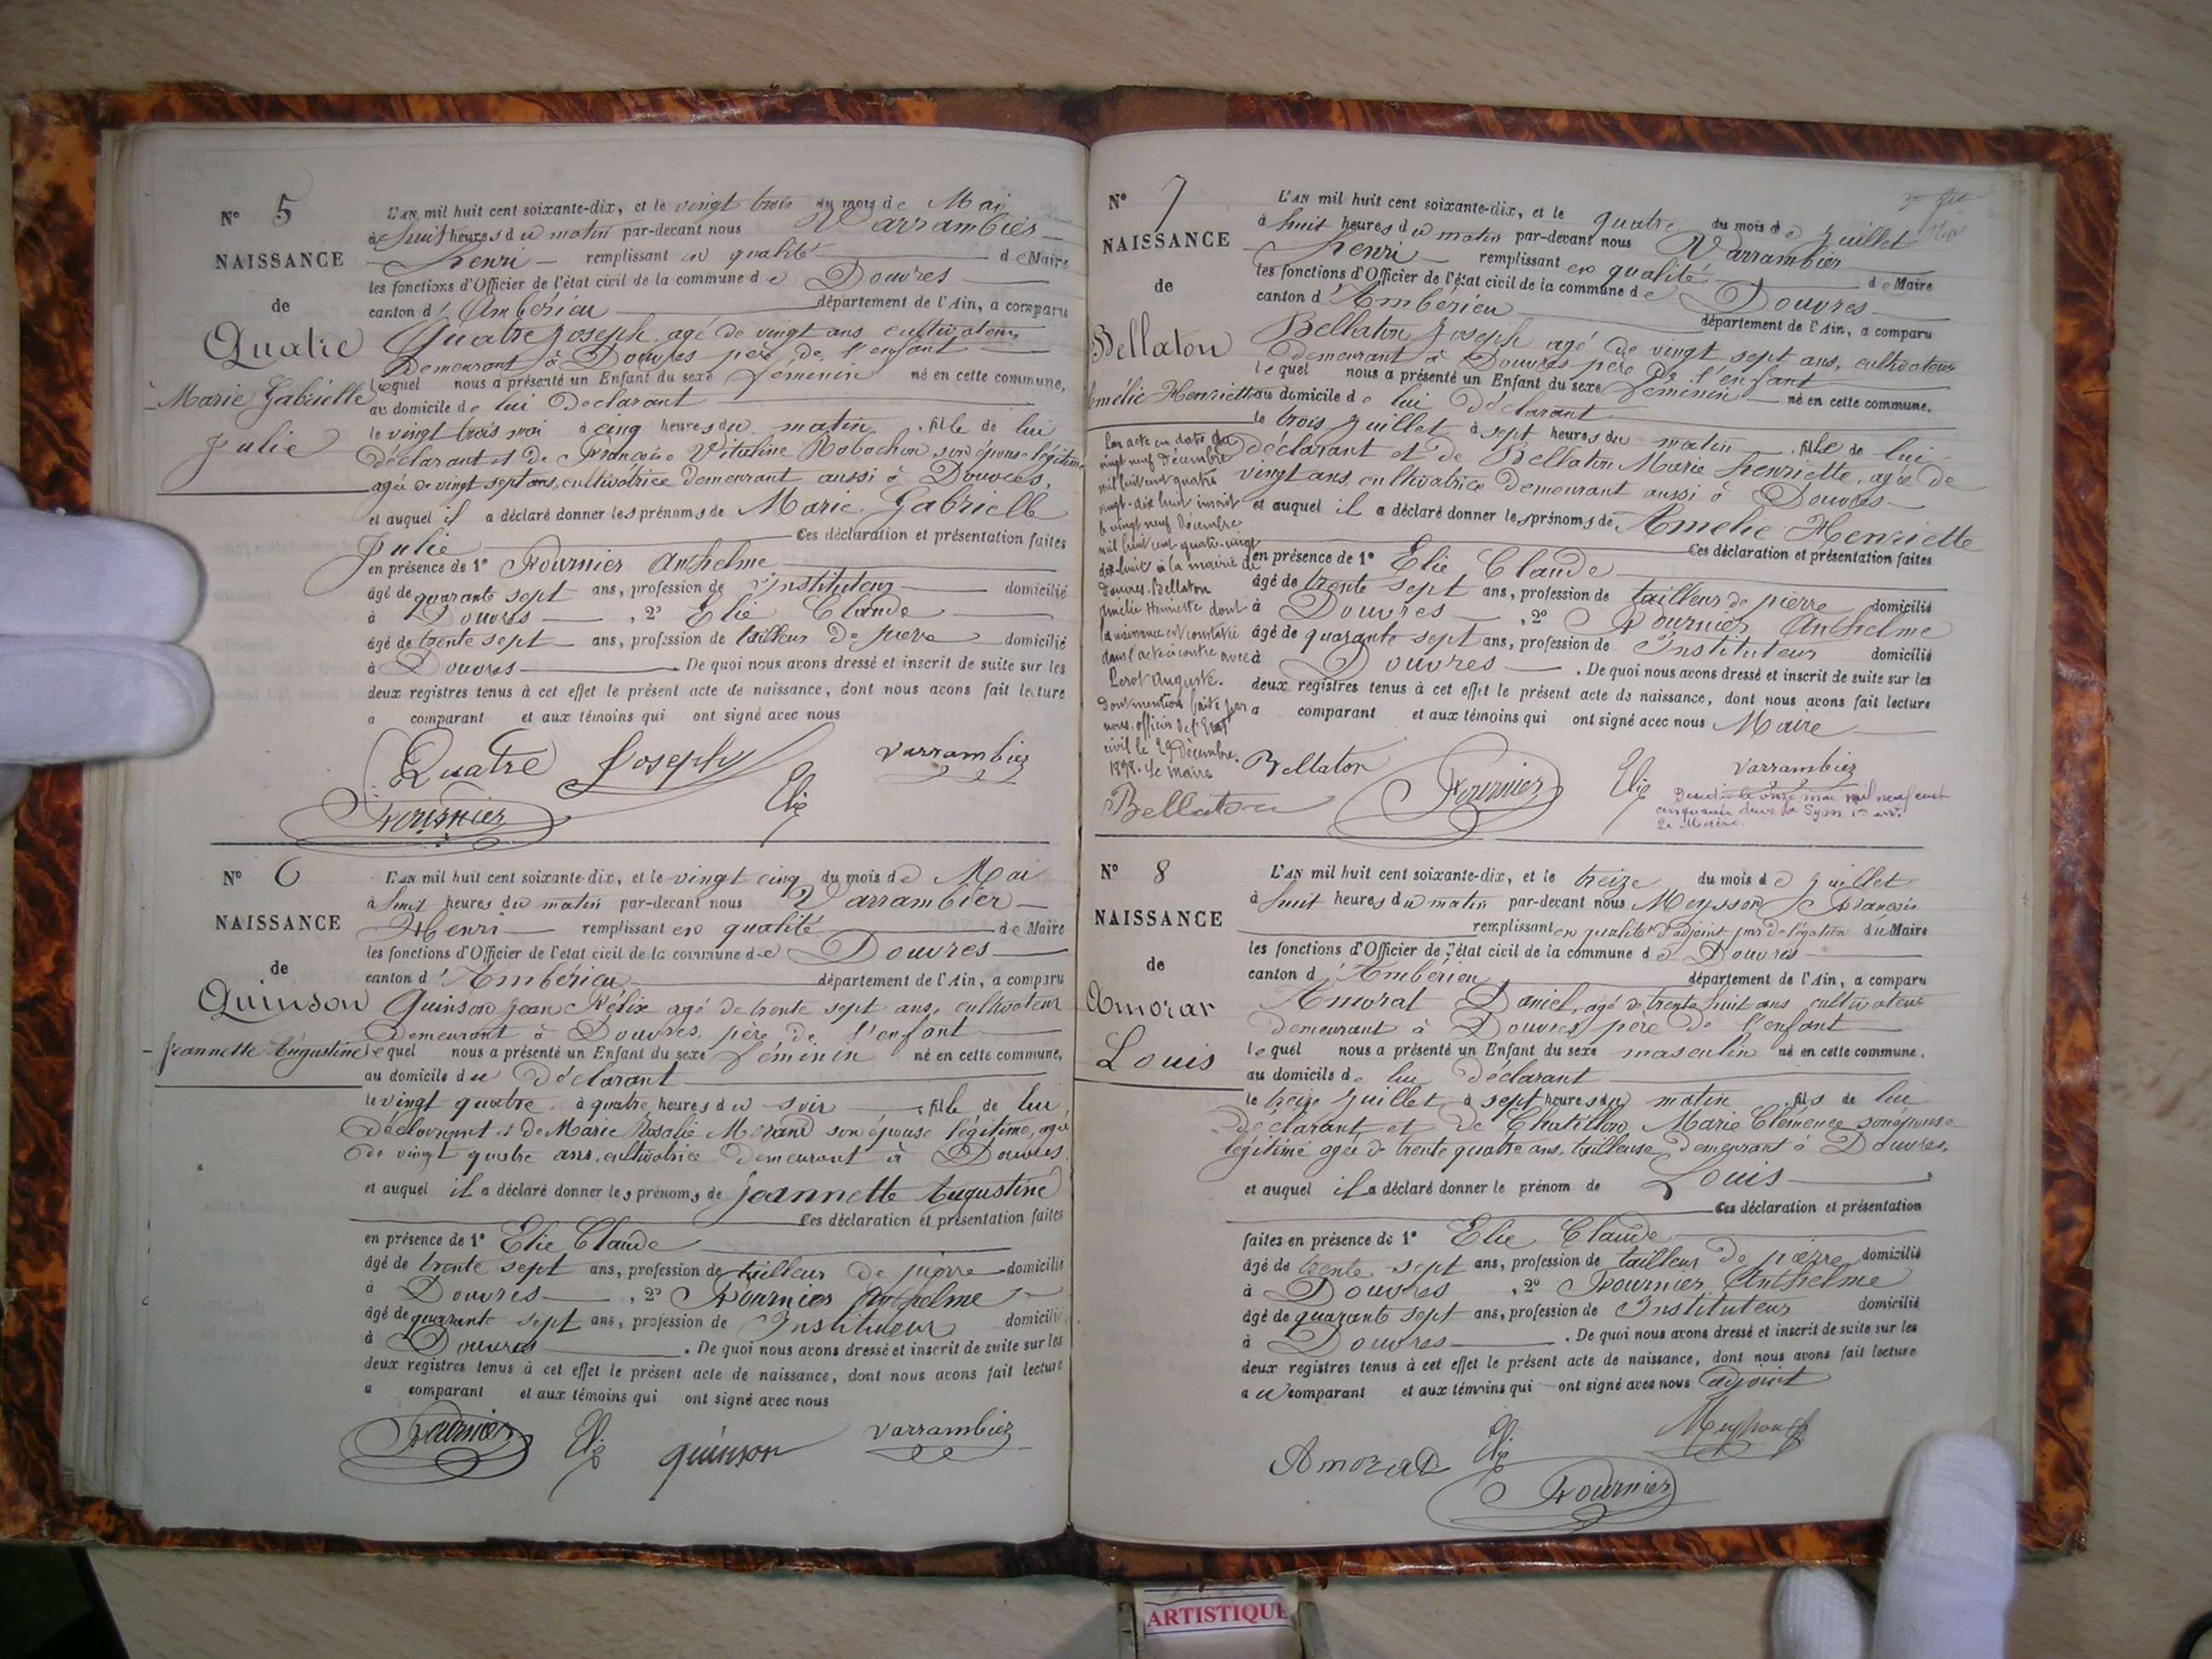 N° 5
NAISSANCE
de
Quatre
Marie Gabrielle
Julie
L'AN mil huit cent soixante-dix, et le vingt trois du mois de Mai
à huit heures du matin par-devant nous Varrambier
Henri remplissant en qualité de Maire
les fonctions d'Officier de l'état civil de la commune de Douvres
canton d'Ambérieu département de l'Ain, a comparu
Quatre Joseph agé de vingt ans cultivateur
Demeurant à Douvres père de l'enfant
lequel nous a présenté un Enfant du sexe féminin né en cette commune,
au domicile de lui Déclarant
le vingt trois mai à cinq heures du matin, fille de lui
déclarant et de Françoise Vitaline Robachon son épouse légitime
agée de vingt sept ans, cultivatrice demeurant aussi à Douvres,
et auquel il a déclaré donner les prénoms de Marie Gabrielle
Julie Ces déclaration et présentation faites
en présence de 1° Fournier Anthelme
âgé de quarante sept ans, profession de Instituteur domicilié
à Douvres, 2° Elie Claude
âgé de trente sept ans, profession de tailleur de pierre domicilié
à Douvres. De quoi nous avons dressé et inscrit de suite sur les
deux registres tenus à cet effet le présent acte de naissance, dont nous avons fait lecture
a comparant et aux témoins qui ont signé avec nous
Quatre Joseph Varrambier
Fournier Elie
N° 6
NAISSANCE
de
Quinson
Jeannette Augustine
L'AN mil huit cent soixante-dix, et le vingt cinq du mois de Mai
à huit heures du matin par-devant nous Varrambier
Henri remplissant en qualité de Maire
les fonctions d'Officier de l'état civil de la commune de Douvres
canton d'Ambérieu département de l'Ain, a comparu
Quinson Jean Félix agé de trente sept ans, cultivateur
Demeurant à Douvres, père de l'enfant
lequel nous a présenté un Enfant du sexe féminin né en cette commune,
au domicile du Déclarant
le vingt quatre à quatre heures du soir, fille de lui
Déclarant et de Marie Rosalie Morand son épouse légitime, agée
de vingt quatre ans, cultivatrice demeurant à Douvres,
et auquel il a déclaré donner les prénoms de Jeannette Augustine
Ces déclaration et présentation faites
en présence de 1° Elie Claude
âgé de trente sept ans, profession de tailleur de pierre domicilié
à Douvres, 2° Fournier Anthelme
âgé de quarante sept ans, profession de Instituteur domicilié
à Douvres. De quoi nous avons dressé et inscrit de suite sur les
deux registres tenus à cet effet le présent acte de naissance, dont nous avons fait lecture
a comparant et aux témoins qui ont signé avec nous
Fournier Elie quinson Varrambier
N° 7
NAISSANCE
de
Bellaton
Amélie Henriette
L'AN mil huit cent soixante-dix, et le quatre du mois de Juillet
à huit heures du matin par-devant nous Varrambier
Henri remplissant en qualité de Maire
les fonctions d'Officier de l'état civil de la commune de Douvres
canton d'Ambérieu département de l'Ain, a comparu
Bellaton Joseph agé de vingt sept ans, cultivateur
demeurant à Douvres père de l'enfant
lequel nous a présenté un Enfant du sexe féminin né en cette commune.
au domicile de lui déclarant
le trois Juillet à sept heures du matin, fille de lui
déclarant et de Bellaton Marie Henriette, agée de
vingt ans, cultivatrice demeurant aussi à Douvres
et auquel il a déclaré donner les prénoms de Amélie Henriette
Ces déclaration et présentation faites
en présence de 1° Elie Claude
âgé de trente sept ans, profession de tailleur de pierre domicilié
à Douvres, 2° Fournier Anthelme
âgé de quarante sept ans, profession de Instituteur domicilié
à Douvres. De quoi nous avons dressé et inscrit de suite sur les
deux registres tenus à cet effet le présent acte de naissance, dont nous avons fait lecture
a comparant et aux témoins qui ont signé avec nous Maire
Par acte en date du
vingt neuf Décembre
mil huit cent quatre
vingt-dix huit inscrit
le vingt neuf décembre
mil huit cent quatre-vingt
dix-huit à la mairie de
Douvres. Bellaton
Amélie Henriette dont
la naissance est constatée
dans l'acte ci contre avec
Perot Auguste.
dont mention faite par
nous officier de l'Etat
civil le 29 Décembre.
1898. Le Maire
Bellaton
Bellaton Fournier Elie Varrambier
Décédée le onze mai mil neuf cent
cinquante deux à Lyon
Le Maire
N° 8
NAISSANCE
de
Amorat
Louis
L'AN mil huit cent soixante-dix, et le treize du mois de Juillet
à huit heures du matin par-devant nous Meysson François
remplissant en qualité d'adjoint par délégation du Maire
les fonctions d'Officier de l'état civil de la commune de Douvres
canton d'Ambérieu département de l'Ain, a comparu
Amorat Daniel, agé de trente huit ans cultivateur
demeurant à Douvres père de l'enfant
lequel nous a présenté un Enfant du sexe masculin né en cette commune.
au domicile de lui déclarant
le treize Juillet à sept heures du matin, fils de lui
déclarant et de Chatillon Marie Clémence son épouse
légitime agée de trente quatre ans, tailleuse, demeurant à Douvres,
et auquel il a déclaré donner le prénom de Louis
Ces déclaration et présentation
faites en présence de 1° Elie Claude
âgé de trente sept ans, profession de tailleur de pierre domicilié
à Douvres, 2° Fournier Anthelme
âgé de quarante sept ans, profession de Instituteur domicilié
à Douvres. De quoi nous avons dressé et inscrit de suite sur les
deux registres tenus à cet effet le présent acte de naissance, dont nous avons fait lecture
au comparant et aux témoins qui ont signé avec nous adjoint
Amorat Elie Meysson
Fournier
ARTISTIQUE